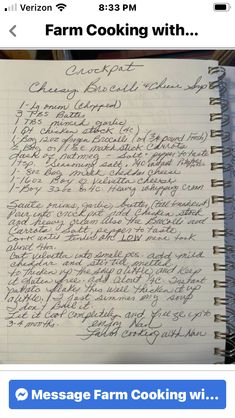 Verizon 8:33 PM
Farm Cooking with...
Crockpot
Cheesy Brocolli & Cheese Soup
1- Lg onion (chopped)
3 TBS Butter
1 TBS minced garlic
1 Qt chicken stock (4c)
1 Bag 12oz frozen Brocolli (or 3/4 pound fresh)
1 Bag matchstick Carrots
dash of nutmeg - Salt - pepper to taste
1 Tsp. Seasoning Salt
8oz Bag mild cheddar cheese
1- 16oz Box of Velveeta cheese
1- Box 32oz or 4c. Heavy whipping cream
Saute onions, garlic, butter,
Put into crock pot add chicken stock
and heavy cream also the Brocolli and
Carrots. Salt, pepper to taste.
Cook until tender on LOW mine took
about 4 hr.
Cut velveeta into small pcs. add mild
cheddar and stir til melted.
to thicken up the soup a little and keep
it gluten free. Add about 1/4c Instant
potato flakes this will thicken it up
a little. I just simmer my soup
I don't Boil it.
Let it cool Completely and freeze up to
3-4 months. enjoy Nan
Farm cooking with Nan
Message Farm Cooking wi...